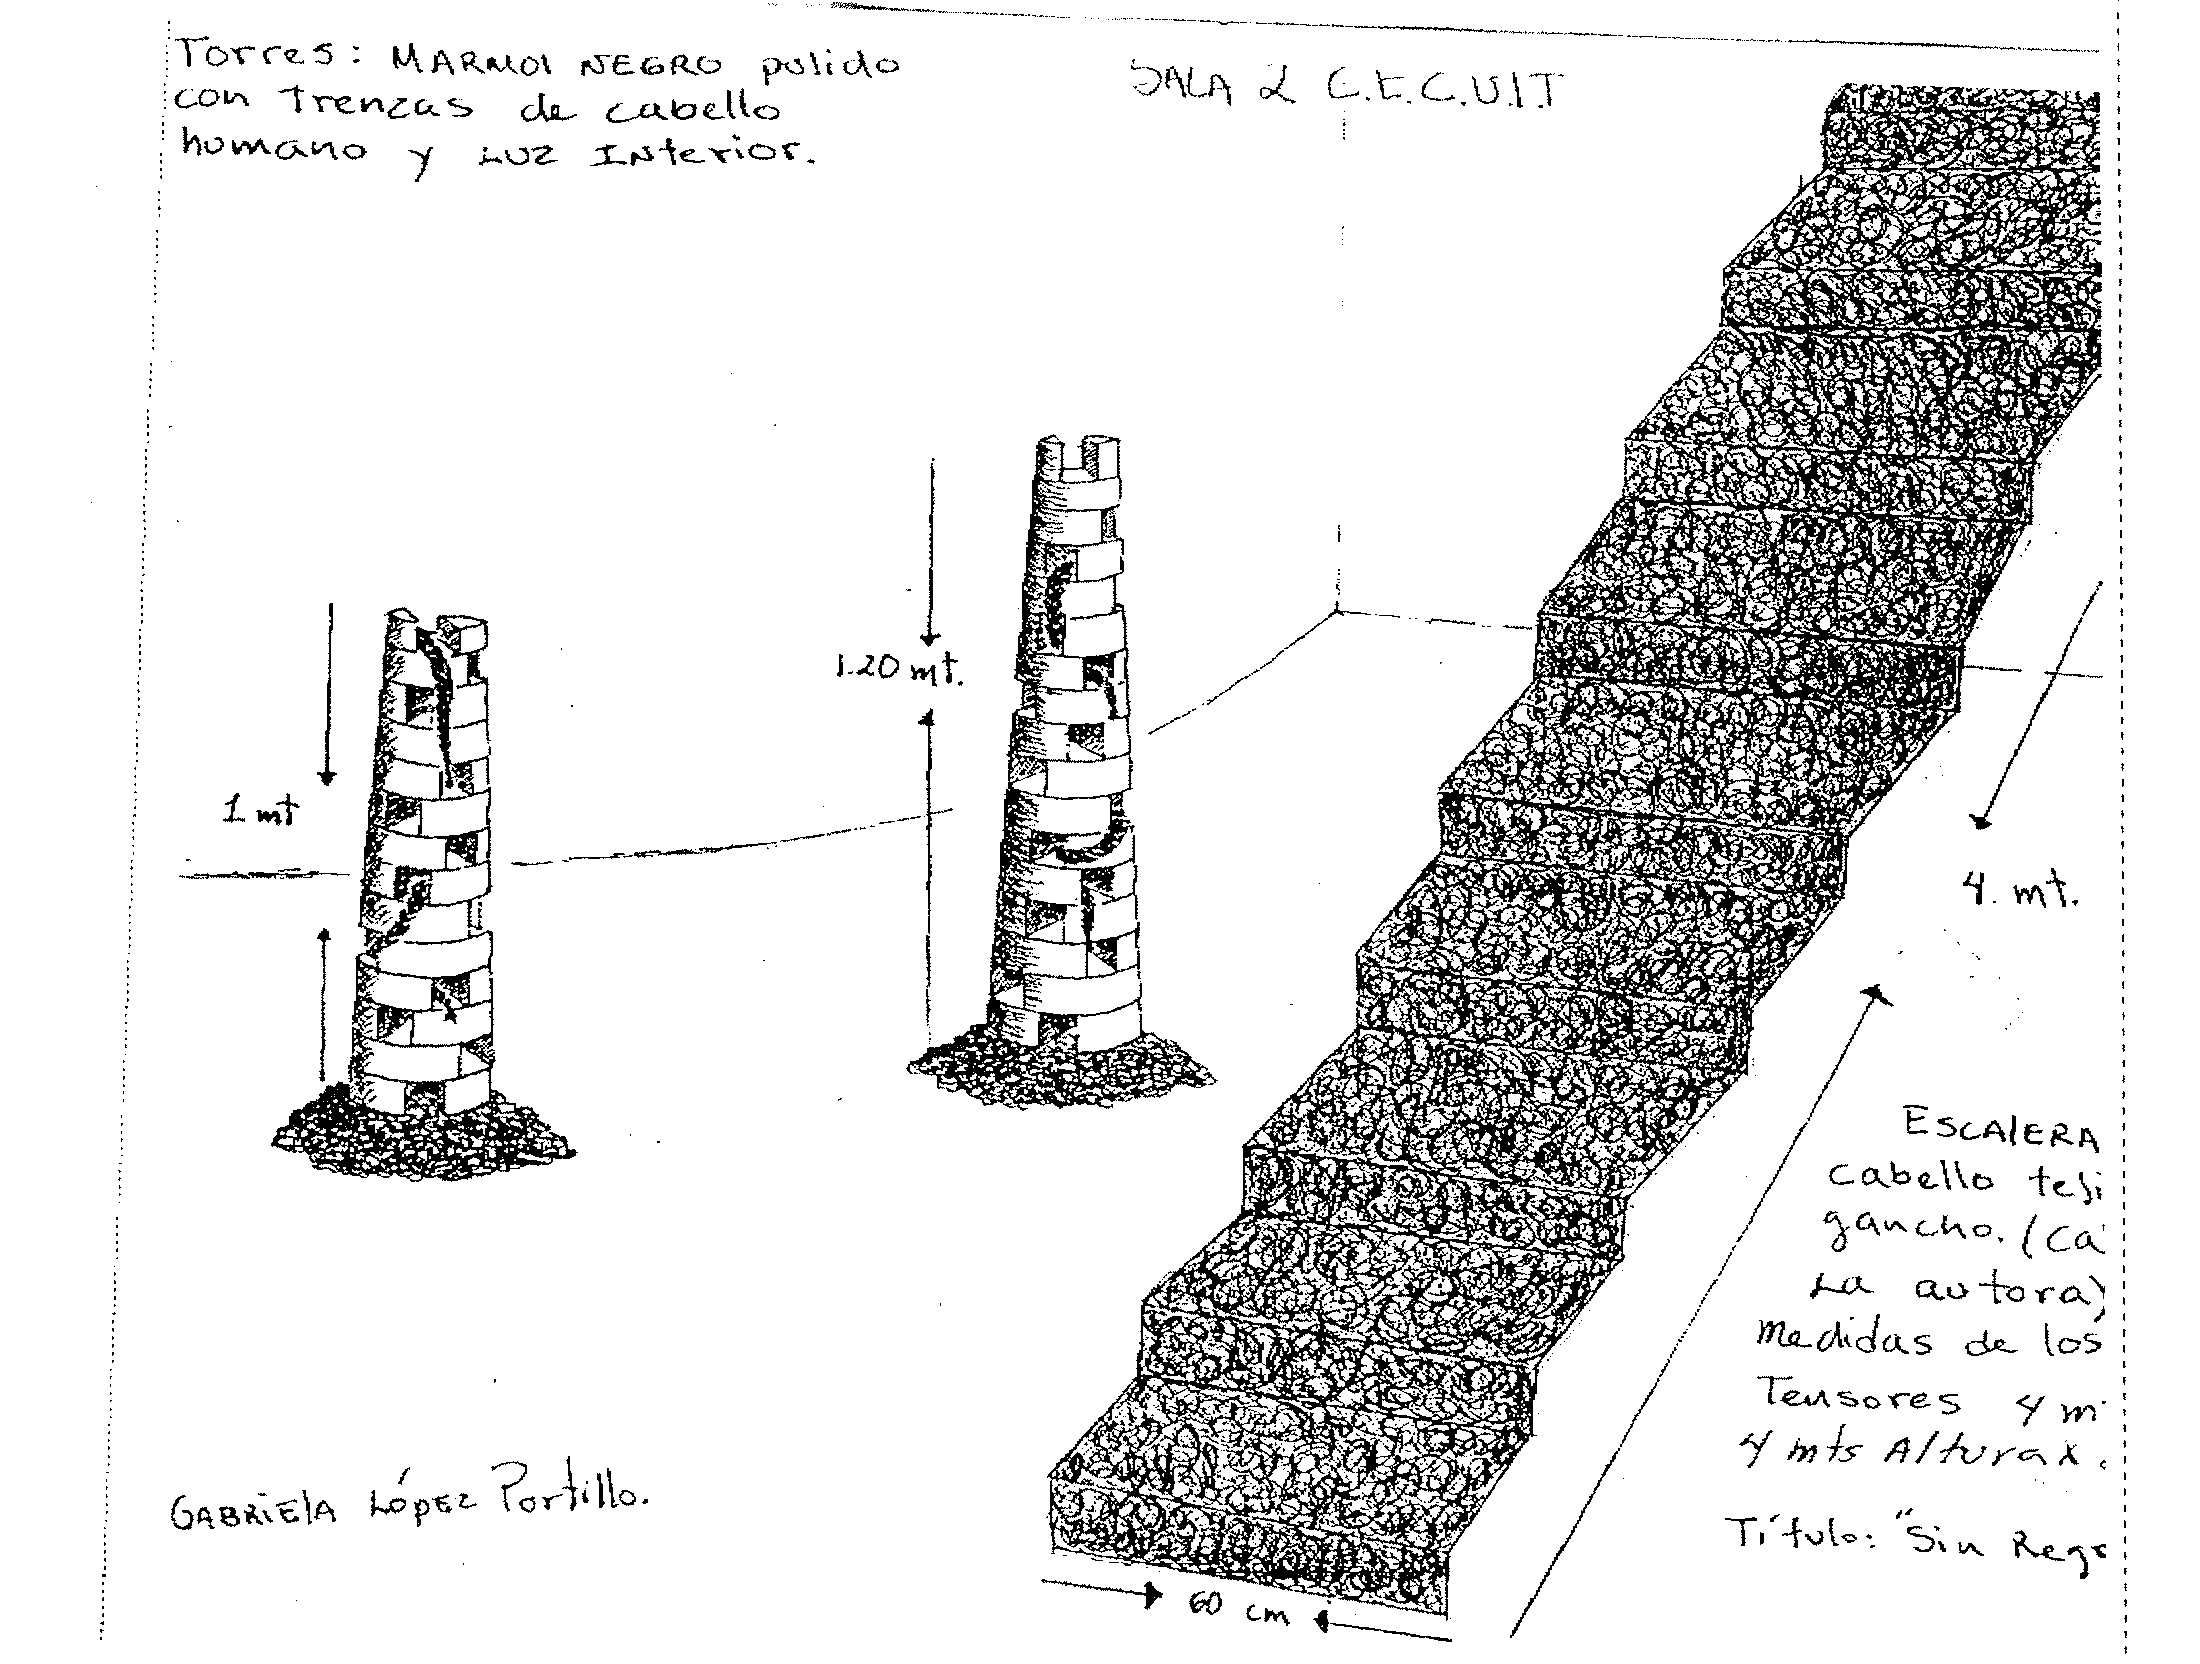 Torres: MARMOl NEGRO pulido
con trenzas de cabello
humano y LUZ INterior.
SALA 2 C.E.C.U.I.T
1 mt
1.20 mt.
4. mt.
ESCAlERA
cabello teji
gancho. (Ca
La autora)
medidas de los
Tensores 4 m
4 mts Altura x
Título: "Sin Regr
GABRIElA López Portillo.
60 cm